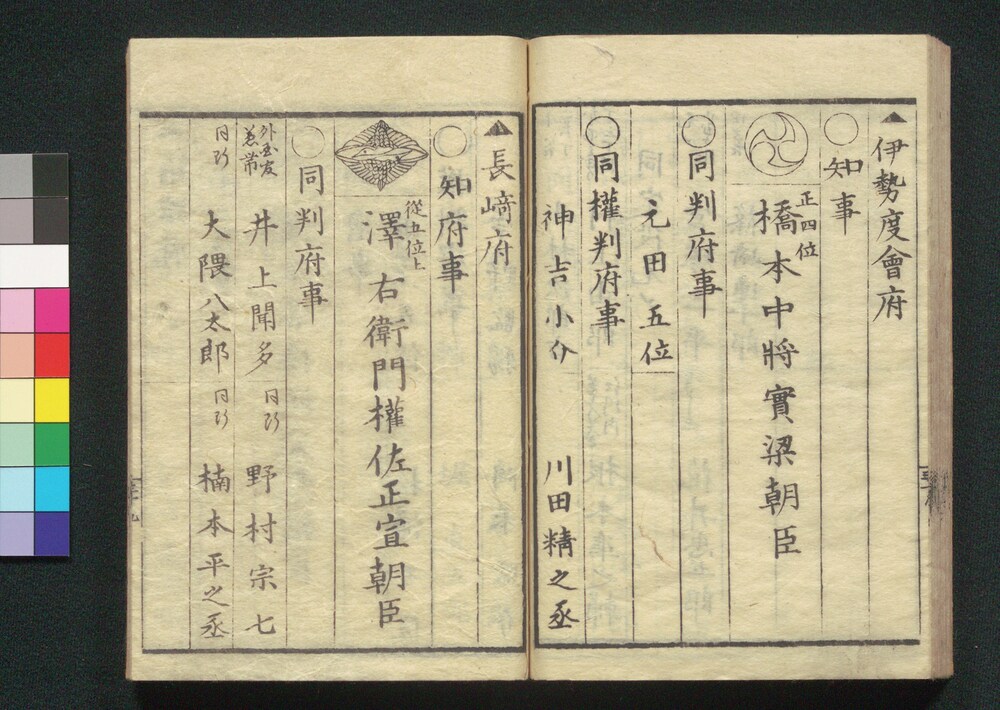 ▲伊勢度會府
○知事
正四位
橋本中將實梁朝臣
○同判府事
元田五位
○同權判府事
神吉小介
川田精之丞
▲長﨑府
○知府事
從五位上
澤右衛門權佐正宣朝臣
○同判府事
井上聞多
同断
野村宗七
同断
大隈八太郎
同断
楠本平之丞